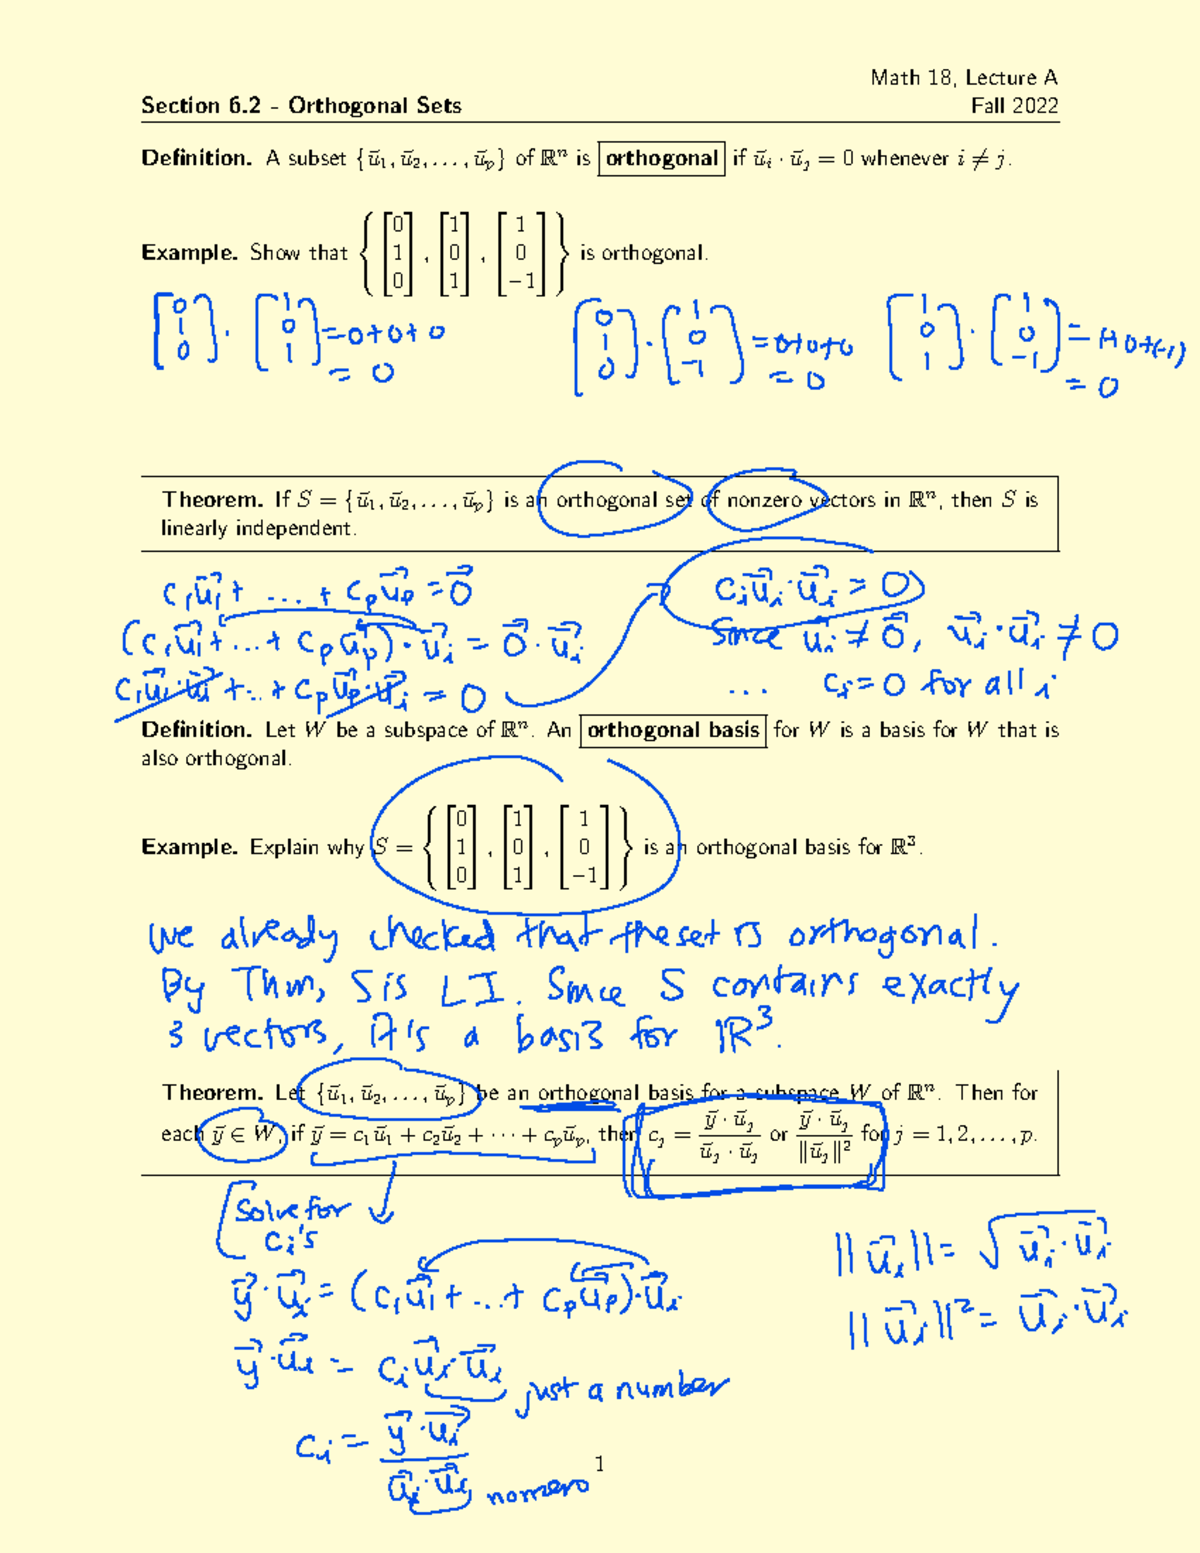 Math 18, Lecture A
Section 6.2 - Orthogonal Sets Fall 2022
Definition. A subset {u⃗₁, u⃗₂, . . . , u⃗ₚ} of ℝⁿ is orthogonal if u⃗ᵢ · u⃗ⱼ = 0 whenever i ≠ j.
Example. Show that { [0 1 0], [1 0 1], [1 0 −1] } is orthogonal.
[0 1 0] · [1 0 1] = 0+0+0 [0 1 0] · [1 0 −1] = 0+0+0 [1 0 1] · [1 0 −1] = 1+0+(-1)
= 0 = 0 = 0
Theorem. If S = {u⃗₁, u⃗₂, . . . , u⃗ₚ} is an orthogonal set of nonzero vectors in ℝⁿ, then S is
linearly independent.
c₁u⃗₁ + ... + cₚu⃗ₚ = 0⃗
(c₁u⃗₁ + ... + cₚu⃗ₚ) · u⃗ᵢ = 0⃗ · u⃗ᵢ
c₁u⃗₁·u⃗ᵢ + ... + cₚu⃗ₚ·u⃗ᵢ = 0
cᵢu⃗ᵢ·u⃗ᵢ = 0
Since u⃗ᵢ ≠ 0⃗, u⃗ᵢ·u⃗ᵢ ≠ 0
... cᵢ = 0 for all i
Definition. Let W be a subspace of ℝⁿ. An orthogonal basis for W is a basis for W that is
also orthogonal.
Example. Explain why S = { [0 1 0], [1 0 1], [1 0 −1] } is an orthogonal basis for ℝ³.
We already checked that the set is orthogonal.
By Thm, S is LI. Since S contains exactly
3 vectors, it's a basis for ℝ³.
Theorem. Let {u⃗₁, u⃗₂, . . . , u⃗ₚ} be an orthogonal basis for a subspace W of ℝⁿ. Then for
each y⃗ ∈ W, if y⃗ = c₁u⃗₁ + c₂u⃗₂ + · · · + cₚu⃗ₚ, then cⱼ = (y⃗ · u⃗ⱼ)/(u⃗ⱼ · u⃗ⱼ) or (y⃗ · u⃗ⱼ)/‖u⃗ⱼ‖² for j = 1, 2, . . . , p.
Solve for
cᵢ's
y⃗·u⃗ᵢ = (c₁u⃗₁ + ... + cₚu⃗ₚ)·u⃗ᵢ
y⃗·u⃗ᵢ = cᵢu⃗ᵢ·u⃗ᵢ just a number
cᵢ = (y⃗·u⃗ᵢ)/(u⃗ᵢ·u⃗ᵢ) nonzero
||u⃗ᵢ|| = √(u⃗ᵢ·u⃗ᵢ)
||u⃗ᵢ||² = u⃗ᵢ·u⃗ᵢ
1